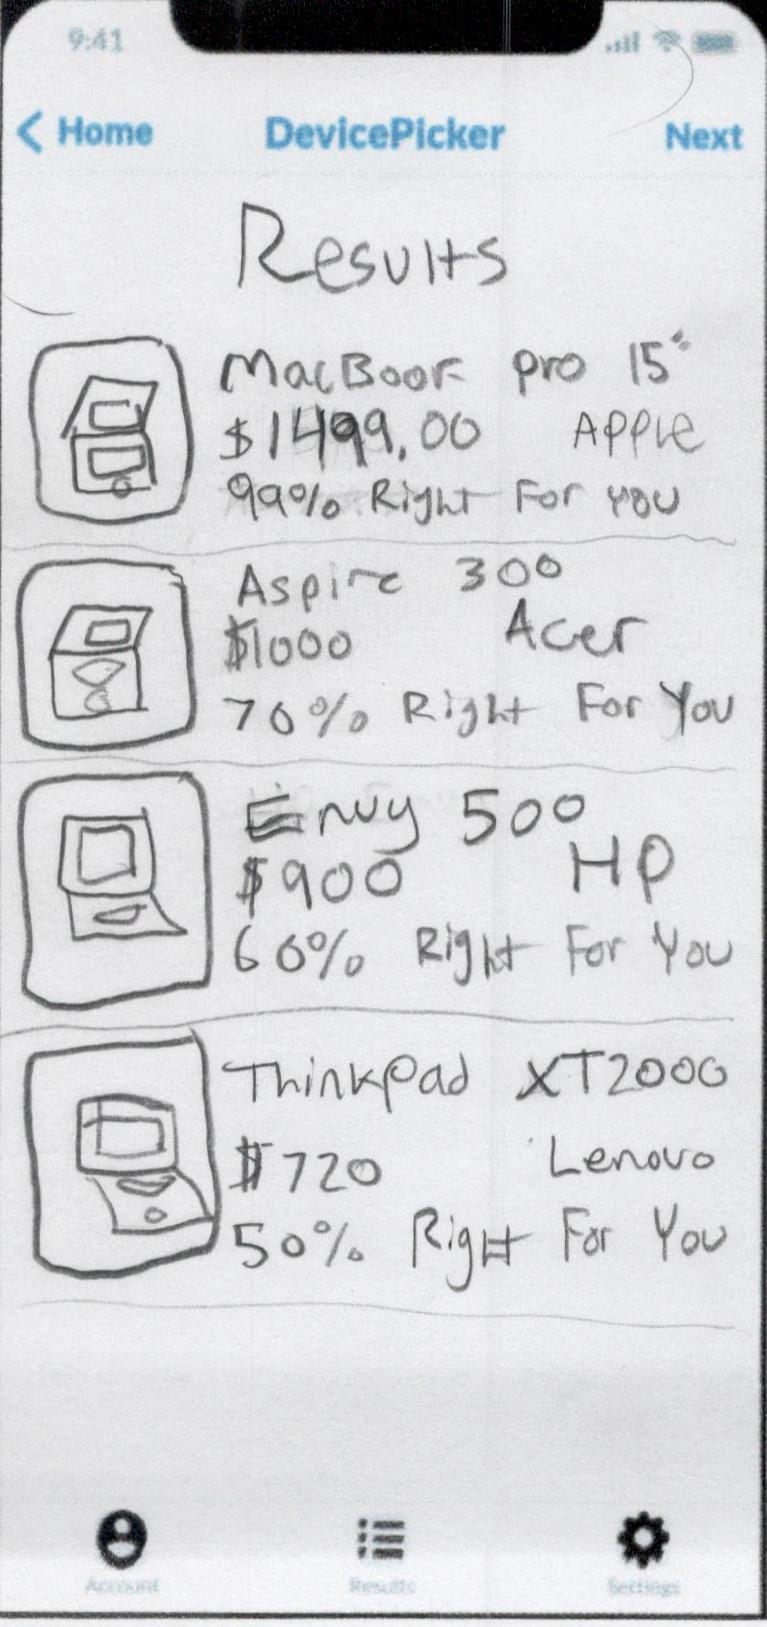 9:41
Home DevicePicker Next
Results
MacBook pro 15"
$1499.00 Apple
99% Right For you
Aspire 300
$1000 Acer
70% Right For You
Envy 500
$900 HP
60% Right For You
Thinkpad XT2000
$720 Lenovo
50% Right For You
Account Results Settings